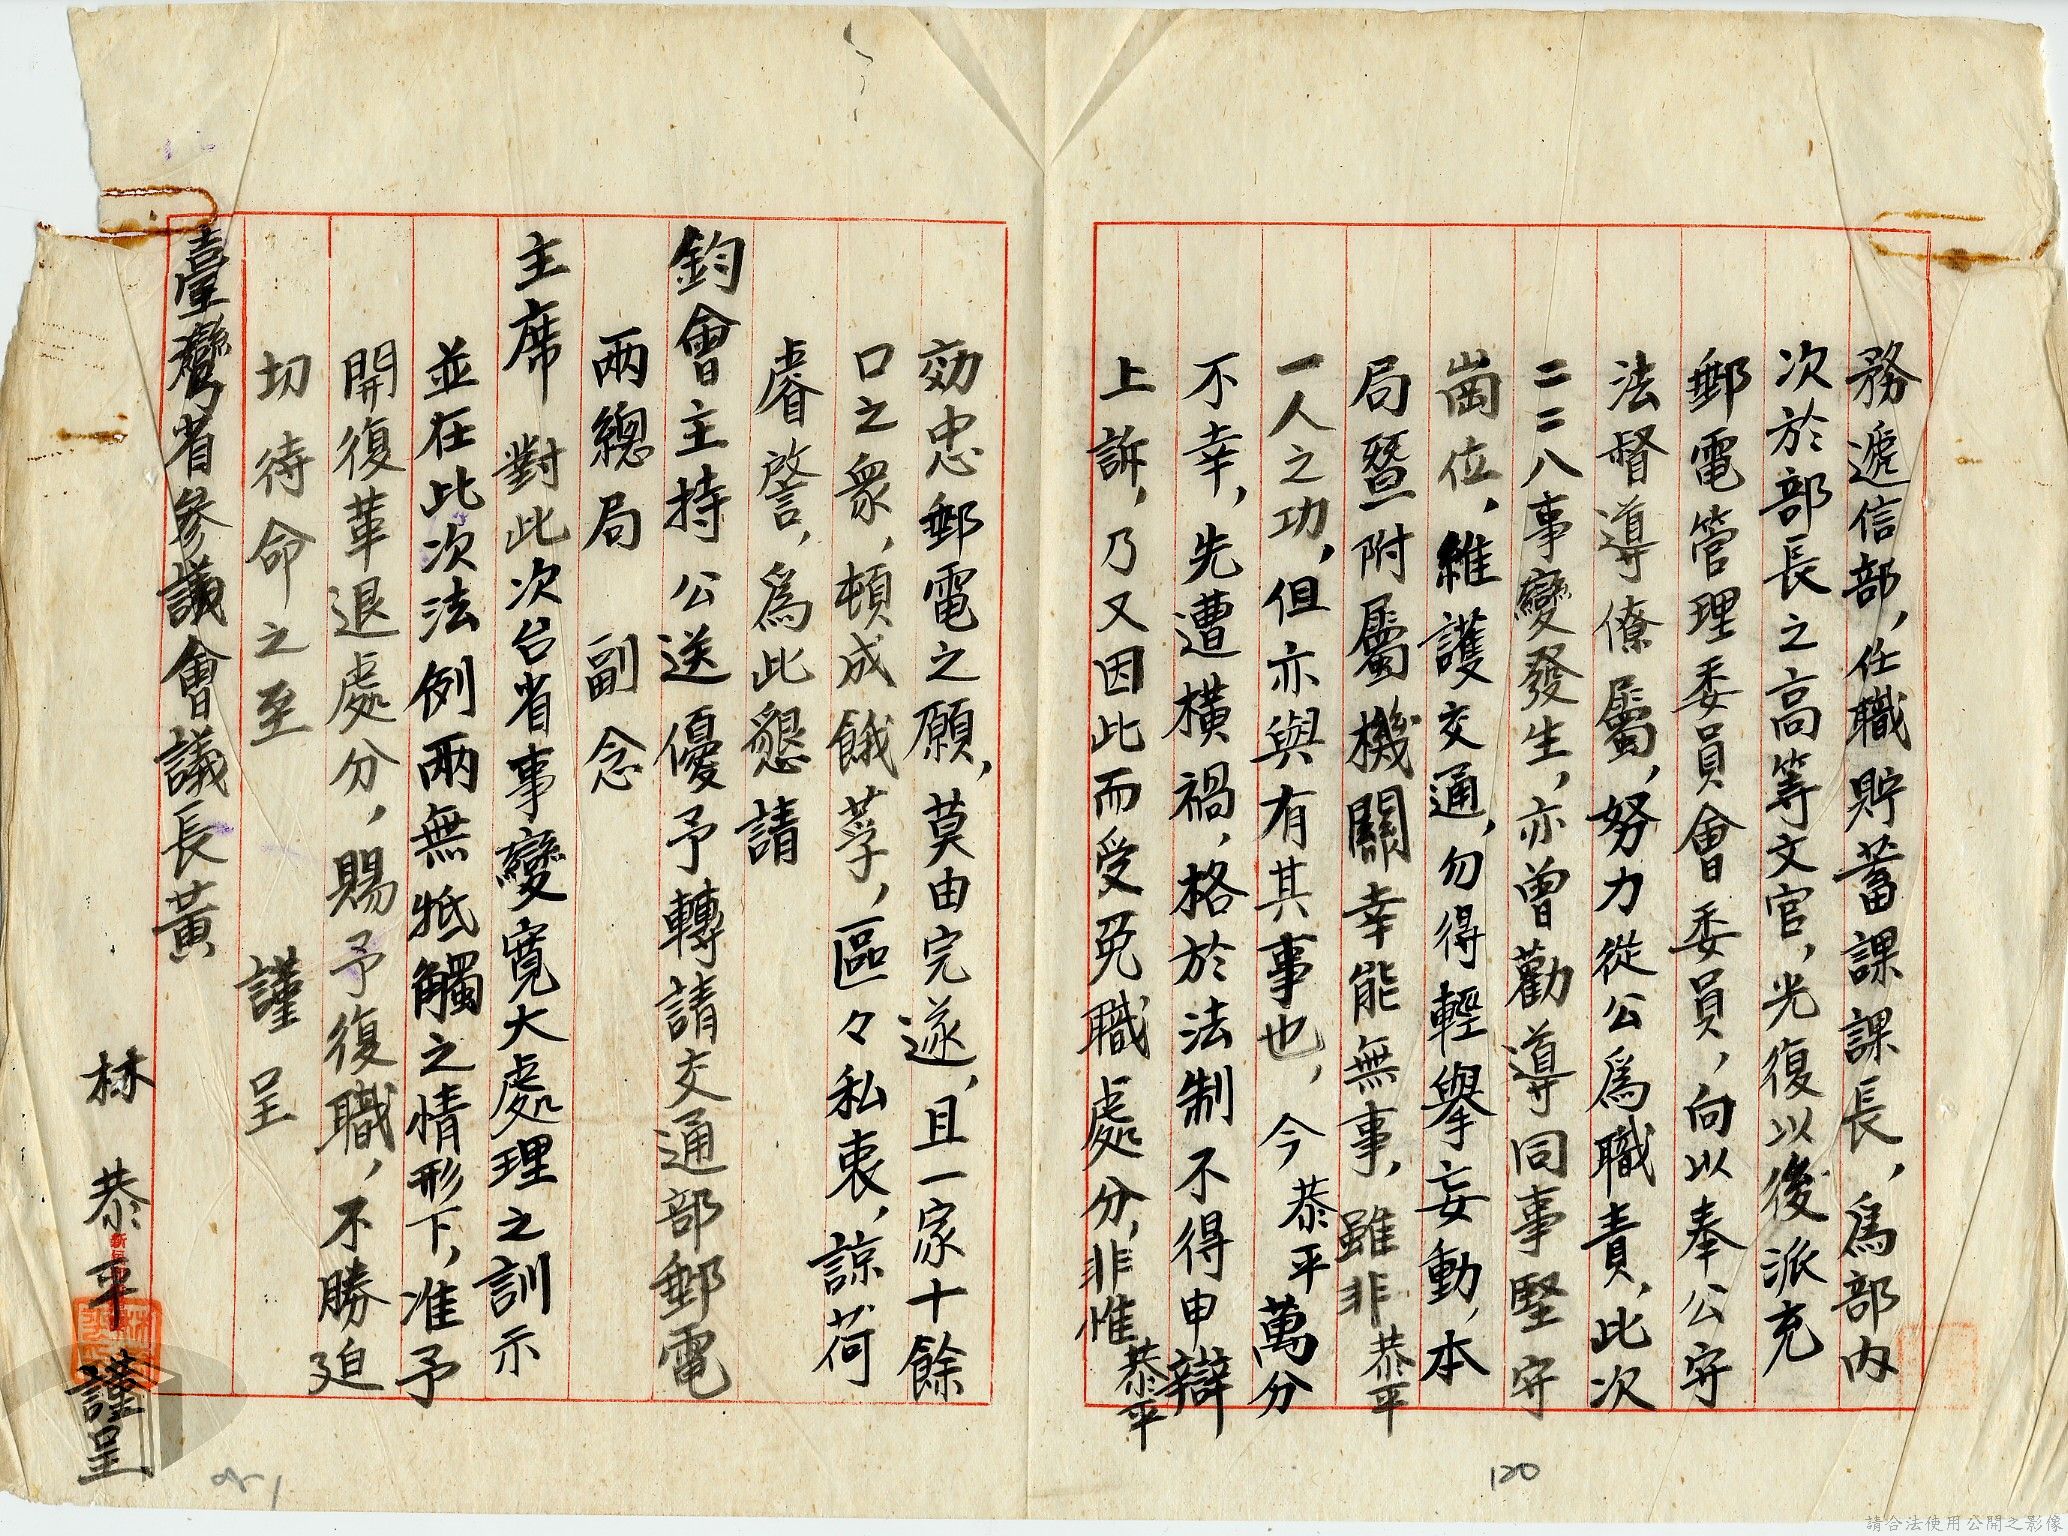 務遞信部，任職貯蓄課課長，爲部內
次於部長之高等文官，光復以後派充
郵電管理委員會委員，向以奉公守
法督導僚屬，努力從公爲職責，此次
二二八事變發生，亦曾勸導同事堅守
崗位，維護交通，勿得輕舉妄動，本
局曁附屬機關幸能無事，雖非恭平
一人之功，但亦與有其事也，今恭平萬分
不幸，先遭橫禍，格於法制不得申辯
上訴，乃又因此而受免職處分，非惟恭平
効忠郵電之願，莫由完遂，且一家十餘
口之衆，頓成餓莩，區々私衷，諒荷
睿詧，爲此懇請
鈞會主持公送優予轉請交通部郵電
兩總局 副念
主席 對此次台省事變寬大處理之訓示
並在此次法例兩無牴觸之情形下，准予
開復革退處分，賜予復職，不勝迫
切待命之至 謹呈
臺灣省參議會議長黃
林恭平謹呈
120
請合法使用公開之影像